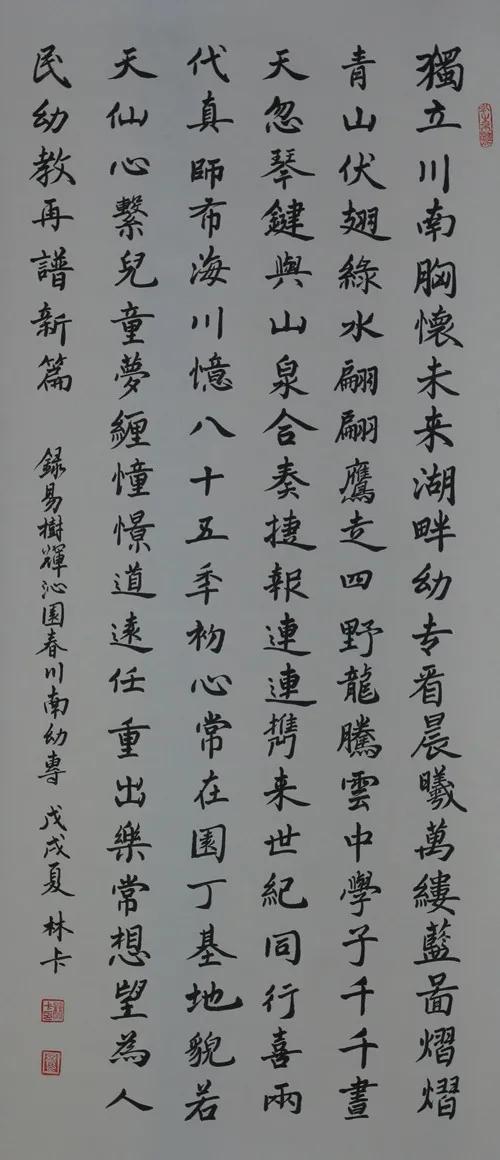 獨立川南胸懷未来湖畔幼专看晨曦萬縷藍啚熠熠
青山伏翅綠水翩翩鷹走四野龍騰雲中學子千千晝
天忽琴鍵與山泉合奏捷報連連攜来世紀同行喜兩
代真師布海川憶八十五季初心常在園丁基地貌若
天仙心繫兒童夢纏憧憬道遠任重出樂常想望為人
民幼教再譜新篇
録易樹輝沁園春川南幼專 戊戌夏 林卡